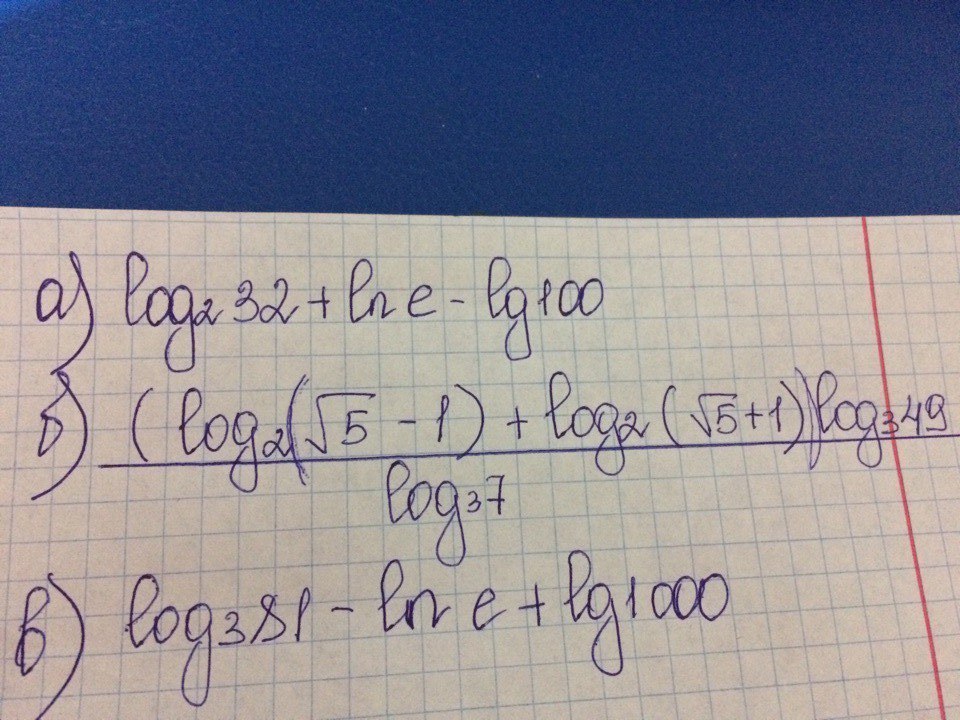 а) log₂32 + ln e - lg100
б) (log₂(√5 - 1) + log₂(√5+1))log₃49
log₃7
в) log₃81 - ln e + lg1000